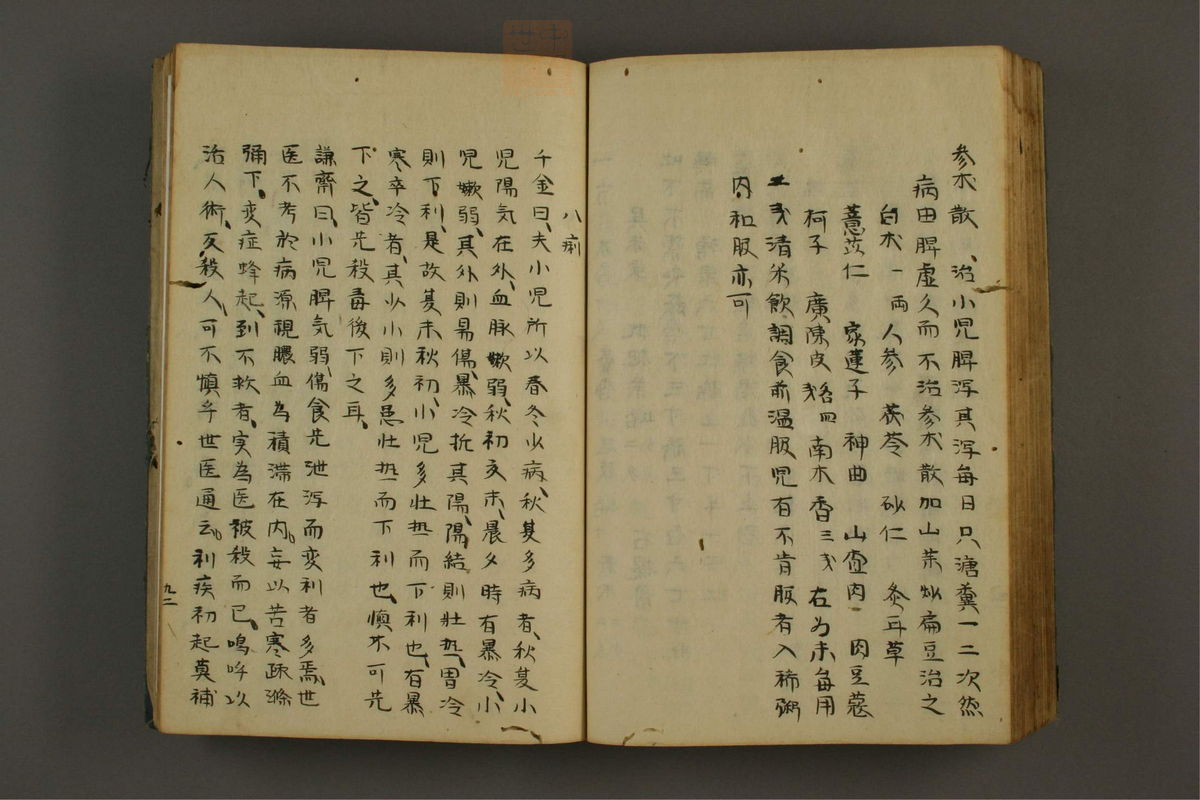 参朮散、治小児脾瀉其瀉每日只溏糞一二次然
病由脾虚久而不治参朮散加山茱炒扁豆治之
白朮一両 人参 茯苓 砂仁 炙甘草
薏苡仁 家蓮子 神曲 山査肉 肉豆蔻
柯子 廣陳皮 各四 南木香三戔 右為末每用
一戔清米飲調食前温服児有不肯服者入稀粥
内和服亦可
八痢
千金曰、夫小児所以春冬少病、秋夏多病者、秋夏小
児陽気在外、血脉嫩弱、秋初夏末、晨夕時有暴冷、小
児嫩弱、其外則易傷、暴冷折其陽、陽結則壮热、胃冷
則下利、是故夏末秋初、小児多壮热而下利也、有暴
寒卒冷者、其少小則多患壮热而下利也、慎不可先
下之、皆先殺毒後下之耳、
謙齋曰、小児脾気弱、傷食先泄瀉而変利者多焉、世
医不考於病源視膿血為積滞在内。妄以苦寒疎滌
弥下、変症蜂起、到不救者、実為医被殺而已、嗚呼以
治人術、反殺人、可不慎乎世医通云。利疾初起莫補
九二